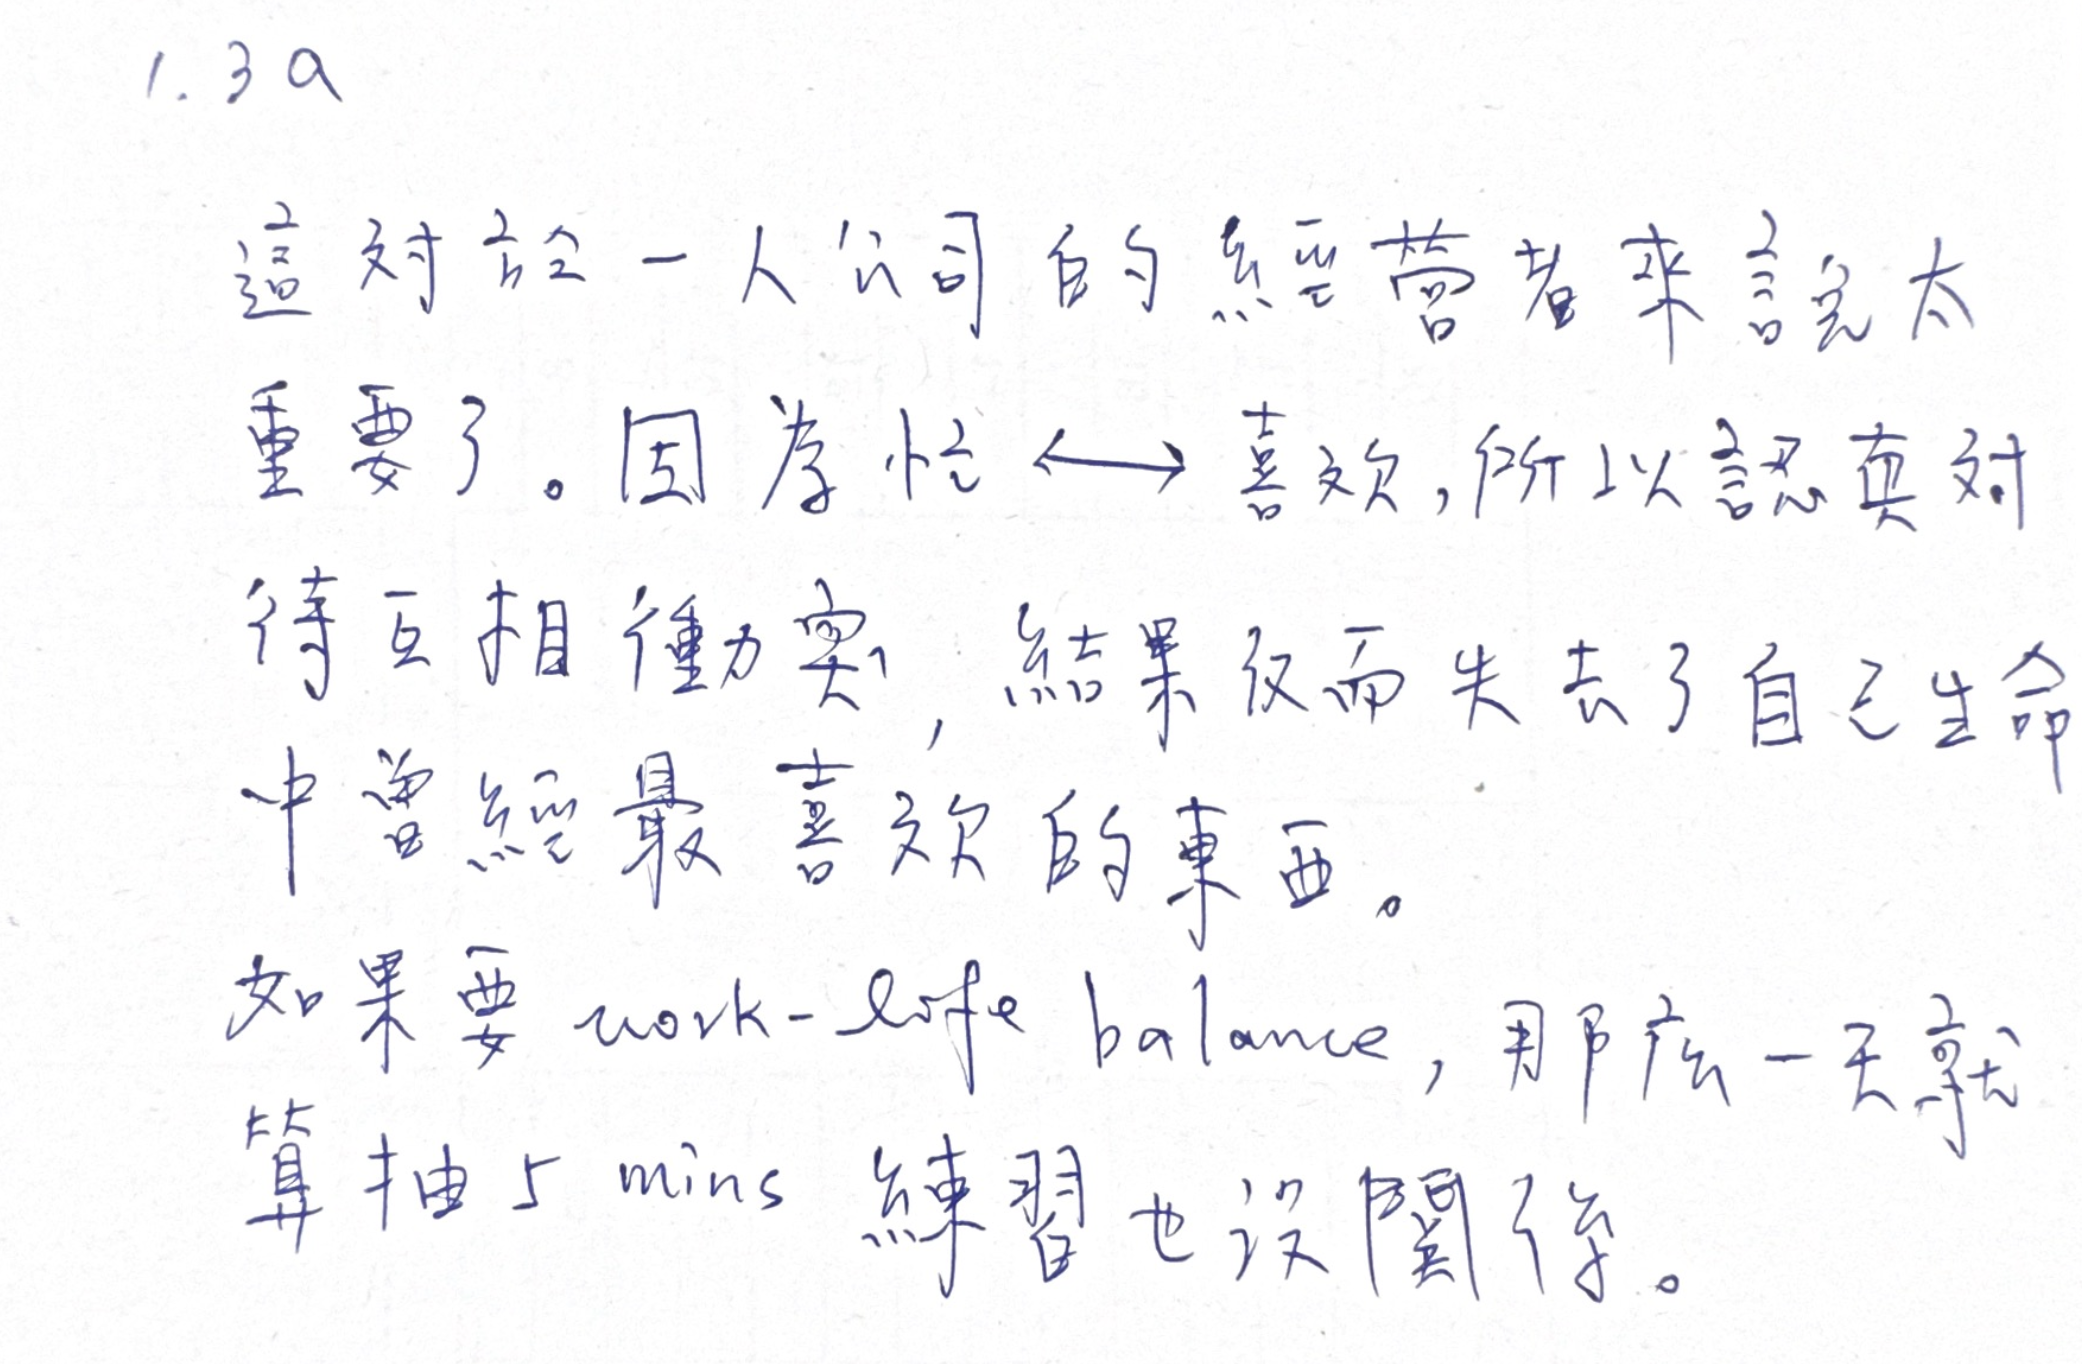 1.3a
這对於一人公司的經营者來說太
重要了。因為忙 ↔ 喜欢,所以認真对
待互相衝突,結果反而失去了自己生命
中曾經最喜欢的東西。
如果要 work-life balance, 那麼一天就
算抽5 mins 練習也没關係。